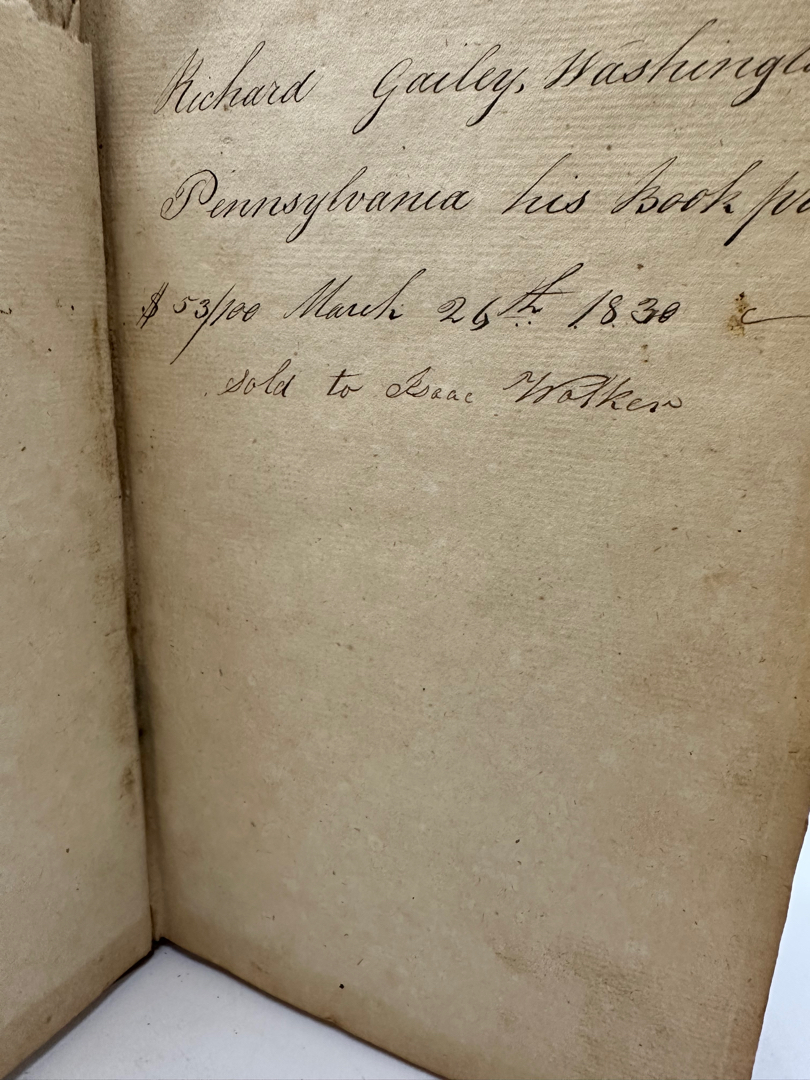 Richard Gailey, Washingto
Pennsylvania his Book pr
$ 53/100 March 26th 1830
sold to Isaac Walker